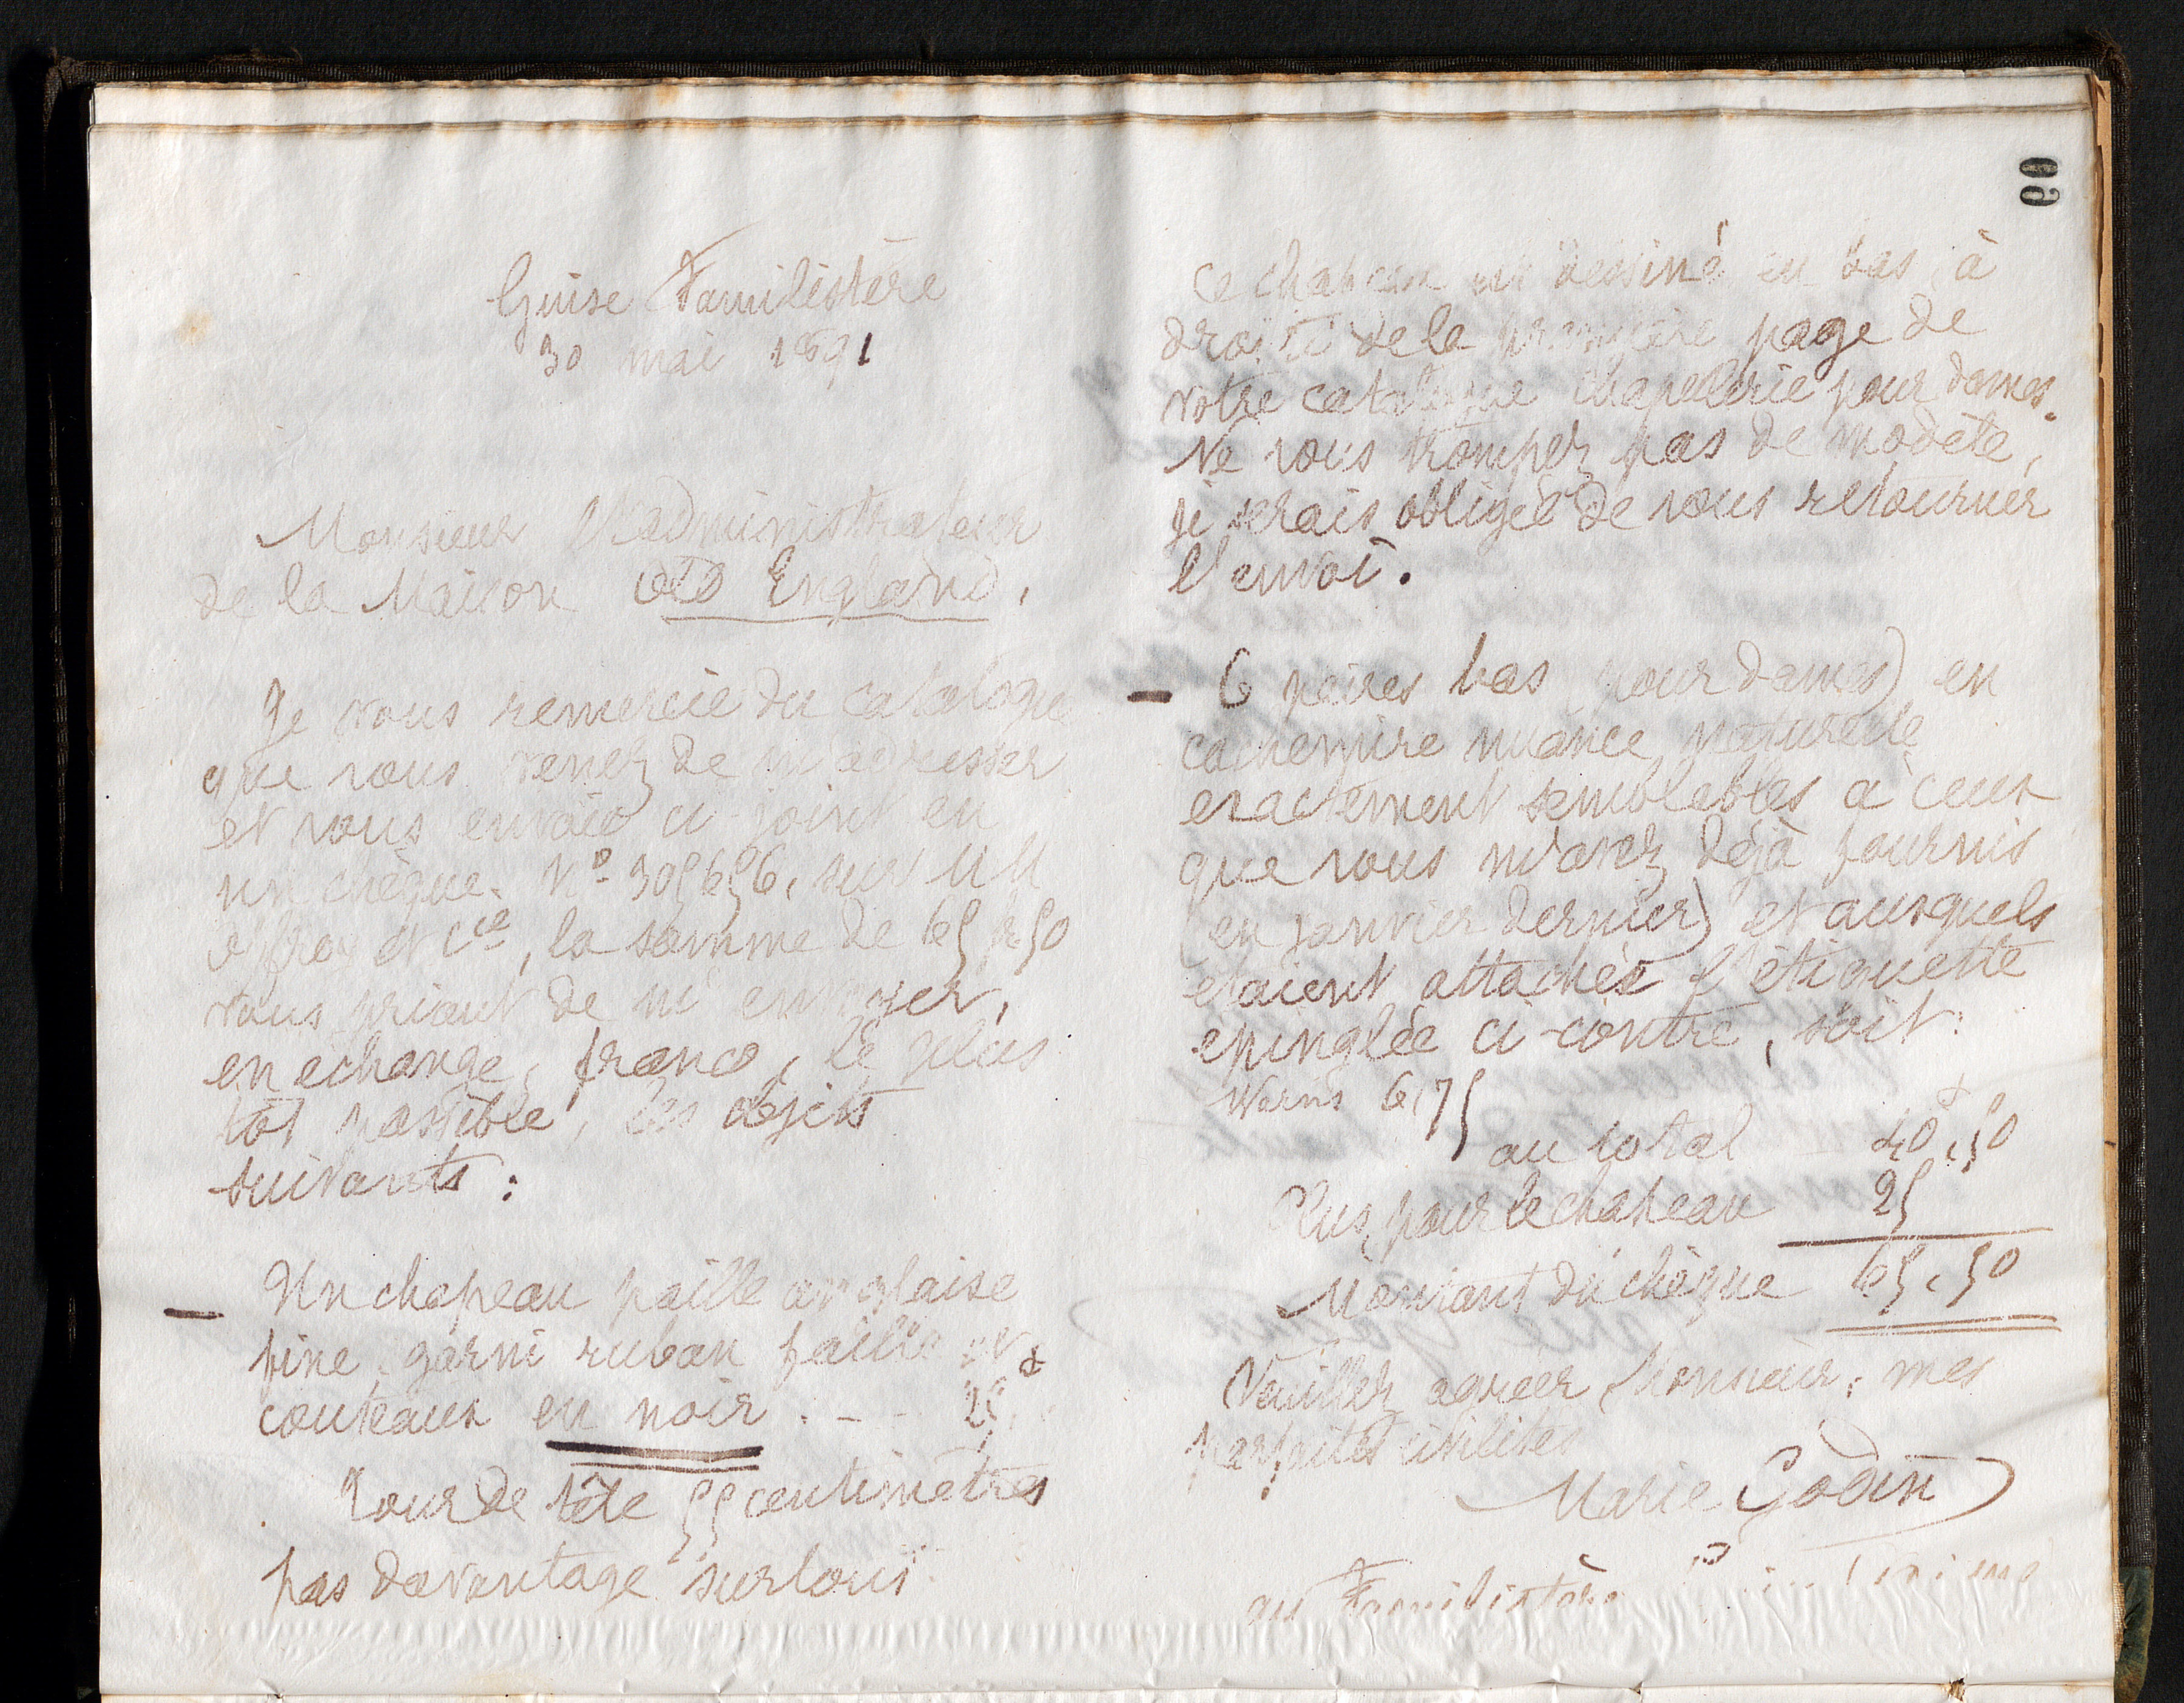 Guise Familistère
30 mai 1891
Monsieur l'administrateur
de la Maison Old England,
Je vous remercie du catalogue
que vous venez de m'adresser
et vous envoie ci-joint en
un chèque. N° 305656, sur MM
et Cie, la somme de 65 fr 50
vous priant de m'envoyer,
en echange, franco, le plus
tôt possible, les objets
suivants :
— Un chapeau paille anglaise
fine, garni ruban faille et
couteaux en noir . - - 25
Tour de tête 55 centimètres
pas davantage surtout
60
Ce chapeau est dessiné en bas à
droite de la première page de
votre catalogue chapellerie pour dames.
Ne vous trompez pas de modèle,
je serais obligée de vous retourner
l'envoi.
— 6 paires bas (pour dames) en
cachemire nuance naturelle
exactement semblables à ceux
que vous m'avez déjà fournis
(en janvier dernier) et auxquels
étaient attachés l'étiquette
epinglée ci-contre, soit :
6,75
au total 40f,50
Plus, pour le chapeau 25
Montant du chèque 65,50
Veuillez agréer, Monsieur, mes
parfaites civilités
Marie Godin
au Familistère